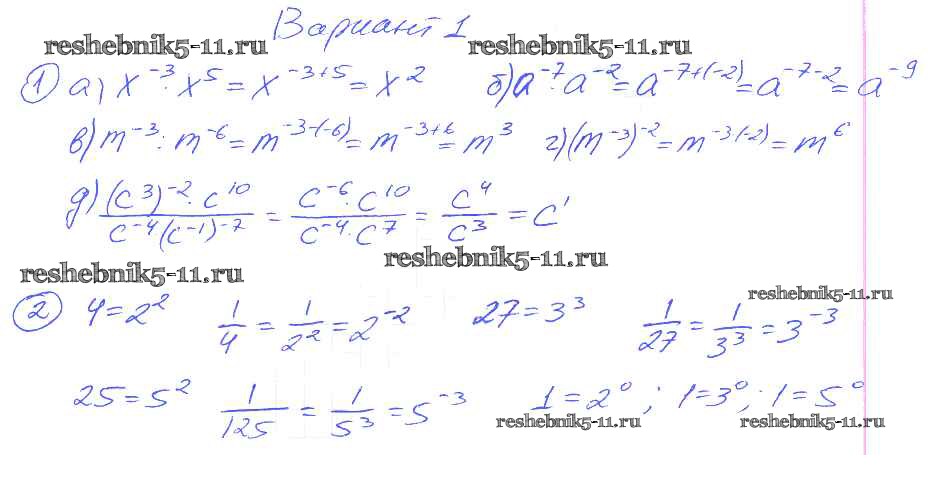 Вариант 1
reshebnik5-11.ru reshebnik5-11.ru
① а) x⁻³ · x⁵ = x⁻³⁺⁵ = x² б) a⁻⁷ · a⁻² = a⁻⁷⁺⁽⁻²⁾ = a⁻⁷⁻² = a⁻⁹
в) m⁻³ : m⁻⁶ = m⁻³⁻⁽⁻⁶⁾ = m⁻³⁺⁶ = m³ г) (m⁻³)⁻² = m^(-3(-2)) = m⁶
д) ((c³)⁻² · c¹⁰)/(c⁻⁴(c⁻¹)⁻⁷) = (c⁻⁶ · c¹⁰)/(c⁻⁴ · c⁷) = c⁴/c³ = c¹
reshebnik5-11.ru reshebnik5-11.ru
② 4 = 2² 1/4 = 1/2² = 2⁻² 27 = 3³ 1/27 = 1/3³ = 3⁻³
reshebnik5-11.ru
25 = 5² 1/125 = 1/5³ = 5⁻³ 1 = 2⁰; 1 = 3⁰; 1 = 5⁰
reshebnik5-11.ru reshebnik5-11.ru